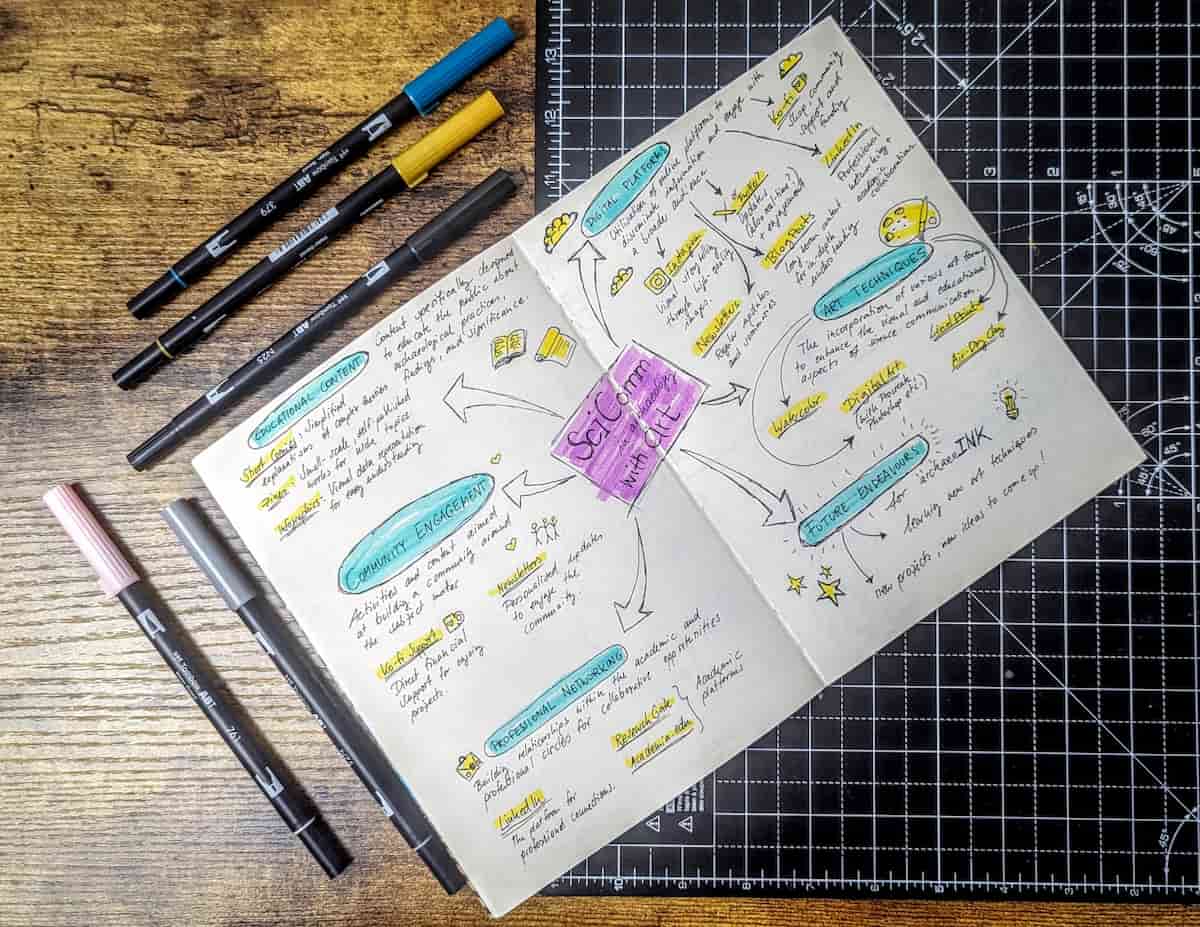 SciComm
with art
DIGITAL PLATFORMS
Utilisation of online platforms to
disseminate information and engage with
a broader audience
Ko-fi
Shop, community
support and
funding
LinkedIn
Professional
networking +
academic
collaborations
updates
+ engagement
Instagram
Visual storytelling
through high-quality
images.
Blog Posts
long form content
for in-depth
Newsletters
Regular updates
and summaries
ART TECHNIQUES
The incorporation of various art forms
to enhance the visual and educational
aspects of science communication.
Watercolor
Digital Art
(with Procreate,
Photoshop etc.)
Air-Dry Clay
FUTURE ENDEAVOURS
for archaeoINK
learning new art techniques
new projects, new ideas to come up!
EDUCATIONAL CONTENT
Content specifically designed
to educate the public about
archaeological practices,
findings, and significance.
Short Comics: Simplified
explanations of complex
Zines: Small-scale, self-published
works for wider topics
Visual data representation
for easy understanding
COMMUNITY ENGAGEMENT
Activities and content aimed
at building a community around
the subject matter
Newsletters
Personalised updates
to engage the
community.
Ko-fi Support
Direct financial
support for ongoing
projects.
PROFESSIONAL NETWORKING
Building relationships within the academic and
professional circles for collaborative opportunities
LinkedIn
The platform for
professional connections.
Research Gate
Academia.edu
Academic
platforms
379
ABT
ABT
N25
ABT
761